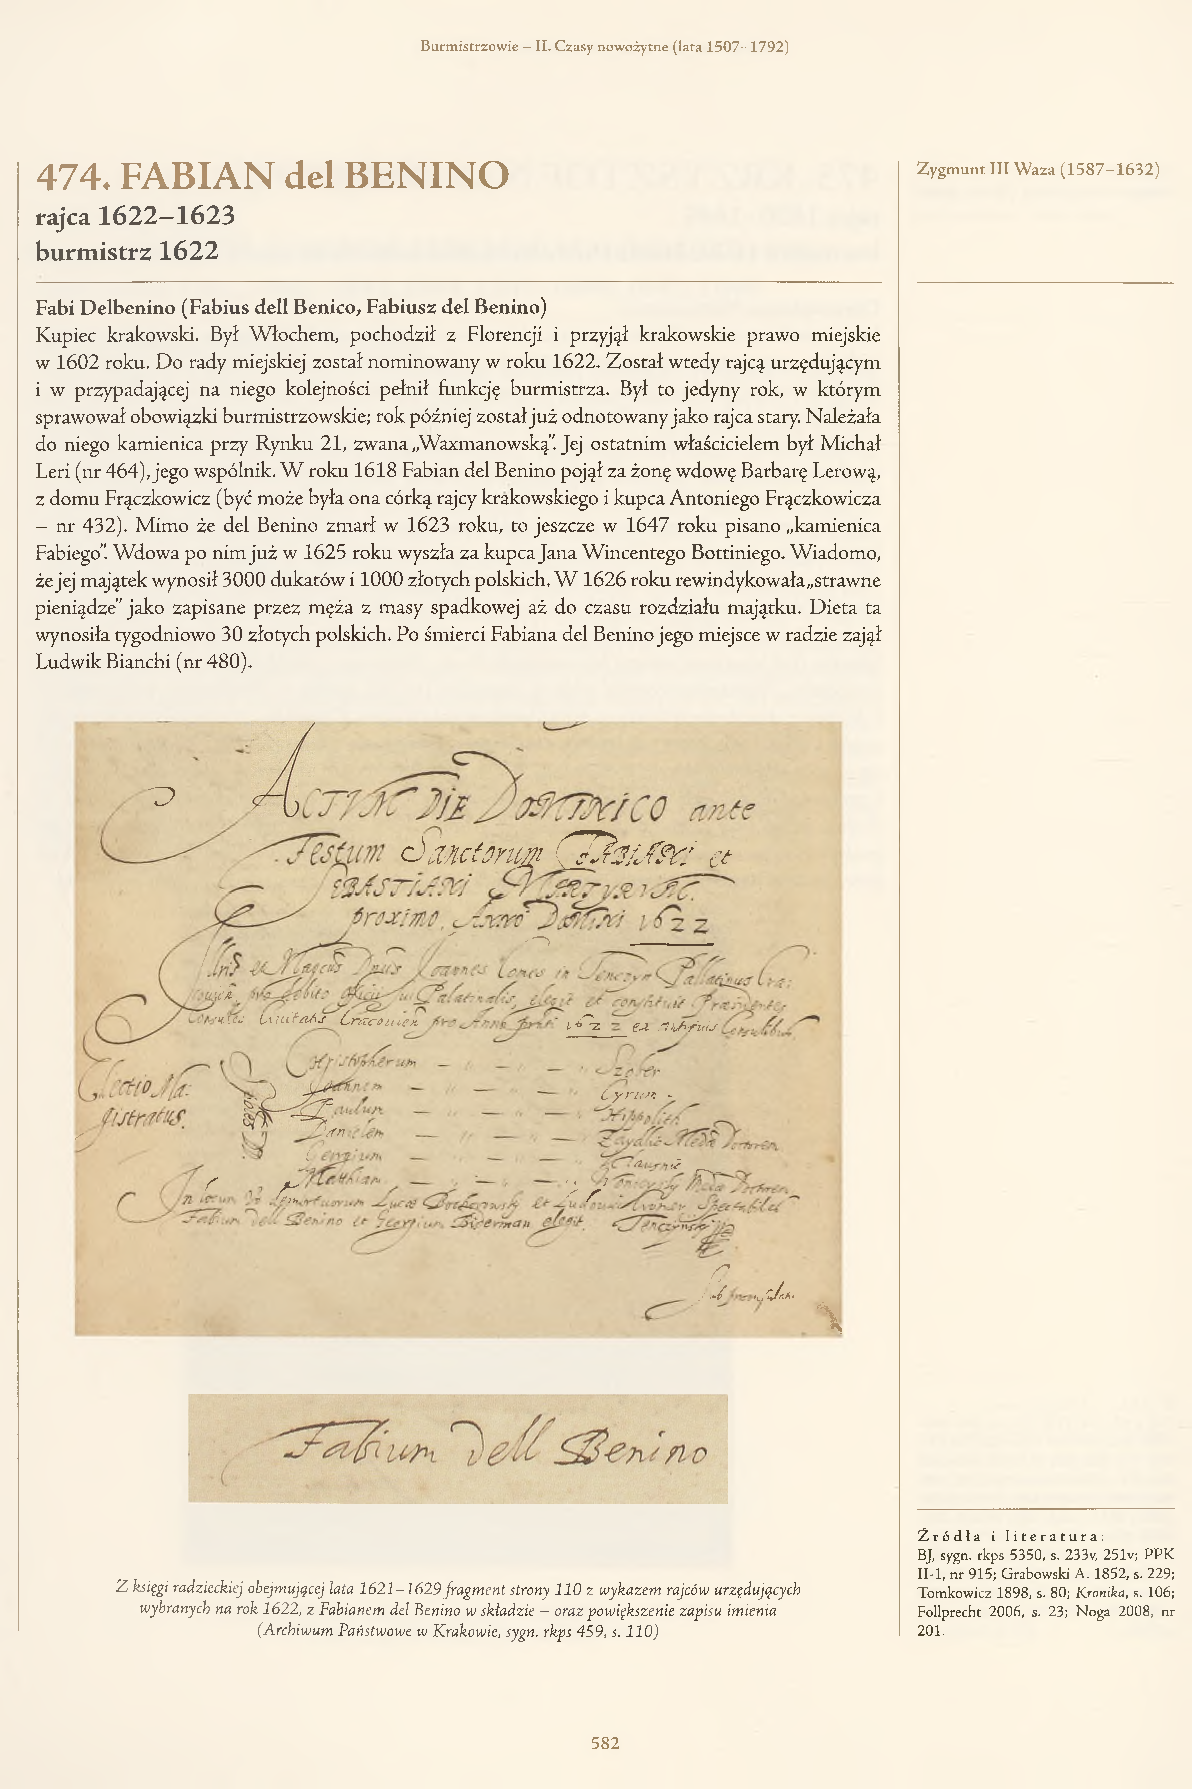 Burmistrzowie – II. Czasy nowożytne (lata 1507–1792)
474. FABIAN del BENINO
rajca 1622–1623
burmistrz 1622
Zygmunt III Waza (1587–1632)
Fabi Delbenino (Fabius dell Benico, Fabiusz del Benino)
Kupiec krakowski. Był Włochem, pochodził z Florencji i przyjął krakowskie prawo miejskie
w 1602 roku. Do rady miejskiej został nominowany w roku 1622. Został wtedy rajcą urzędującym
i w przypadającej na niego kolejności pełnił funkcję burmistrza. Był to jedyny rok, w którym
sprawował obowiązki burmistrzowskie; rok później został już odnotowany jako rajca stary. Należała
do niego kamienica przy Rynku 21, zwana „Waxmanowską”. Jej ostatnim właścicielem był Michał
Leri (nr 464), jego wspólnik. W roku 1618 Fabian del Benino pojął za żonę wdowę Barbarę Lerową,
z domu Frączkowicz (być może była ona córką rajcy krakowskiego i kupca Antoniego Frączkowicza
– nr 432). Mimo że del Benino zmarł w 1623 roku, to jeszcze w 1647 roku pisano „kamienica
Fabiego”. Wdowa po nim już w 1625 roku wyszła za kupca Jana Wincentego Bottiniego. Wiadomo,
że jej majątek wynosił 3000 dukatów i 1000 złotych polskich. W 1626 roku rewindykowała „strawne
pieniądze” jako zapisane przez męża z masy spadkowej aż do czasu rozdziału majątku. Dieta ta
wynosiła tygodniowo 30 złotych polskich. Po śmierci Fabiana del Benino jego miejsce w radzie zajął
Ludwik Bianchi (nr 480).
ACTVM DIE DOMINICO ante
Festum Sanctorum FABIANI et
SEBASTIANI MARTYRVM
proximo. Anno DOMINI 1622
Joannes Comes in Tenczyn Pallatinus
pro debito officii sui Palatinalis, elegit et constituit Praesidentes
Consules Civitatis pro Anno 1622 ex Consulibus
Electio Magistratus.
Christopherum Szober
Joannem Cyrum
Paulum Hippolith
Danielem
Georgium
Matthiam
In locum demortuorum Lucae et Spectabiles
Fabium dell Benino et Georgium elegit.
Fabium dell Benino
Z księgi radzieckiej obejmującej lata 1621–1629 fragment strony 110 z wykazem rajców urzędujących
wybranych na rok 1622, z Fabianem del Benino w składzie – oraz powiększenie zapisu imienia
(Archiwum Państwowe w Krakowie, sygn. rkps 459, s. 110)
Źródła i literatura:
BJ, sygn. rkps 5350, s. 233v, 251v; PPK
II-1, nr 915; Grabowski A. 1852, s. 229;
Tomkowicz 1898, s. 80; Kronika, s. 106;
Follprecht 2006, s. 23; Noga 2008, nr
201.
582